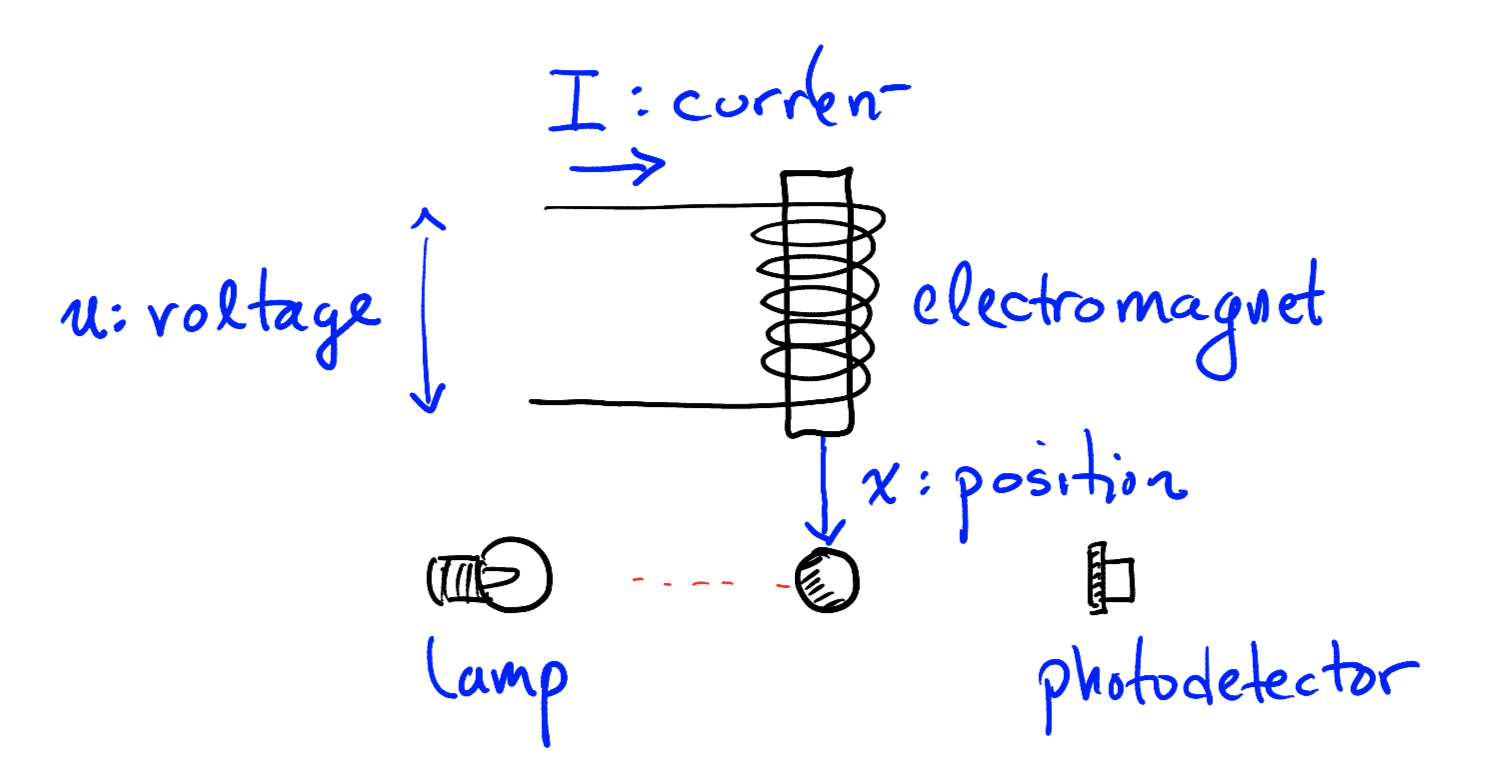 I : curren
u: voltage
electromagnet
x : position
lamp
photodetector